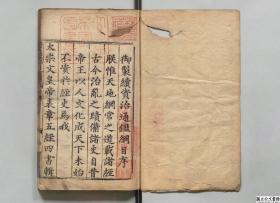 御製續資治通鑑綱目序
朕惟天地綱常之道載諸經
古今治亂之蹟備諸史自昔
帝王以人文化成天下未始
不資於經史焉我
太宗文皇帝表章五經四書輯